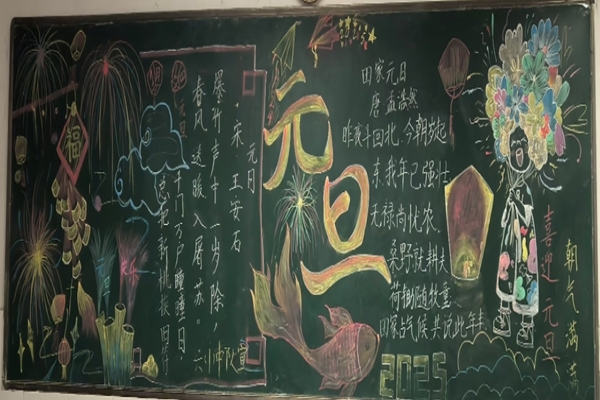 福
元日
·宋·王安石
爆竹声中一岁除,
春风送暖入屠苏。
千门万户曈曈日
总把新桃换旧符
元旦
田家元日
唐 孟浩然
昨夜斗回北,今朝岁起
东,我年已强壮
无禄尚忧农。
桑野就耕夫
荷锄随牧童。
田家占气候 共说此年丰
2025
喜迎元旦
朝气满满